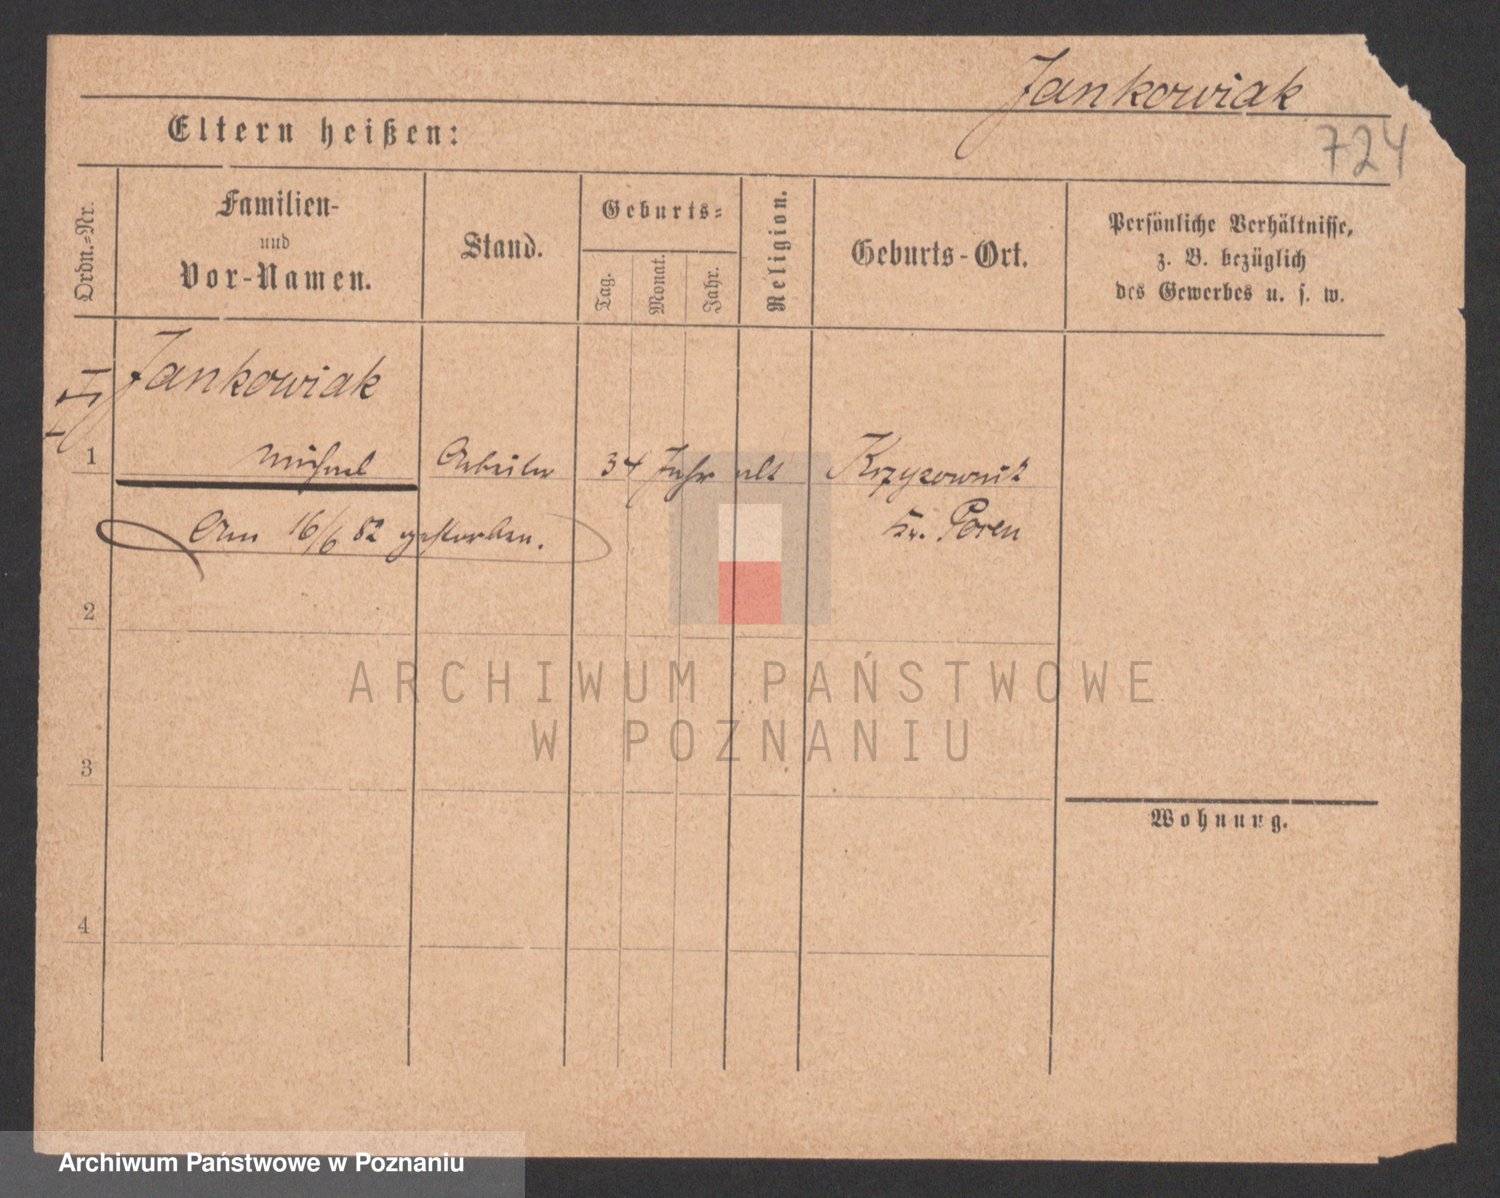 Jankowiak
724
Eltern heißen:
Ordn.-Nr.
Familien-
und
Vor-Namen.
Stand.
Geburts-
Tag.
Monat.
Jahr.
Religion.
Geburts-Ort.
Persönliche Verhältnisse,
z. B. bezüglich
des Gewerbes u. s. w.
Jankowiak
1 Michael Arbeiter 34 Jahr alt Krzyzownik
Am 16/6 82 gestorben. Kr. Posen
2
ARCHIWUM PAŃSTWOWE
W POZNANIU
3
Wohnung.
4
Archiwum Państwowe w Poznaniu